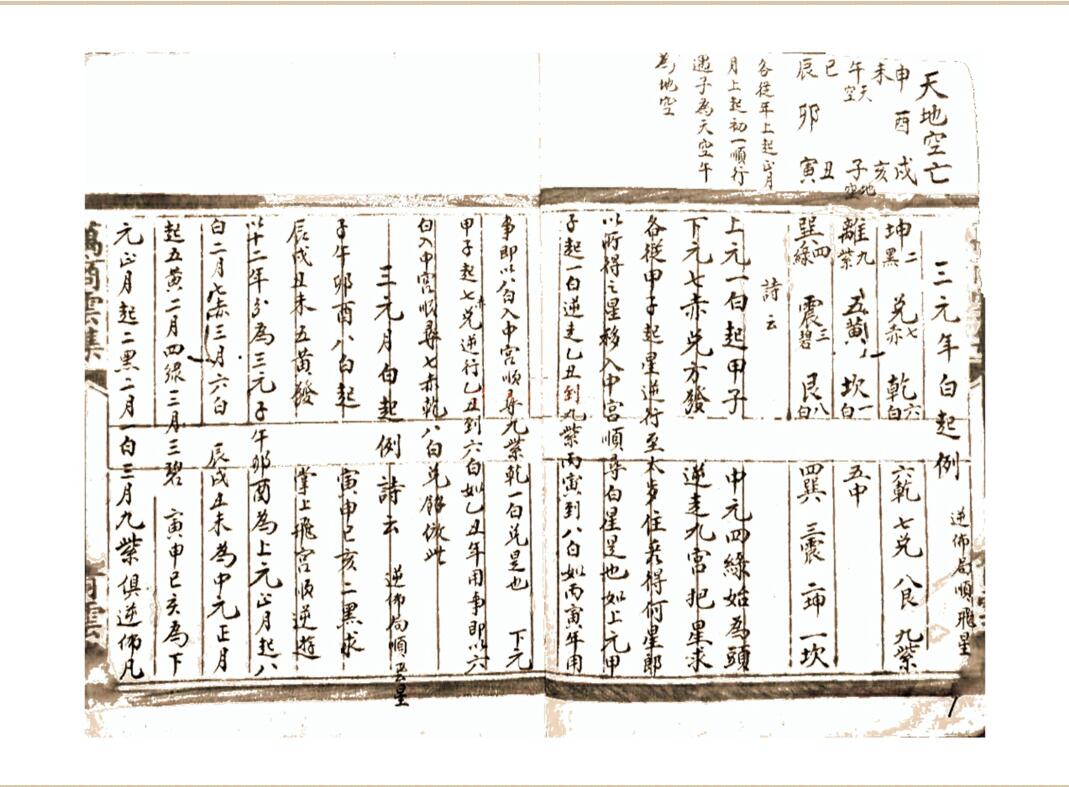 天地空亡
申 酉 戌
未 亥
午 天空 子 地空
巳 丑
辰 卯 寅
各從年上起正月
月上起初一順行
遇子為天空午
為地空
三元年白起例 逆佈局順飛星
坤二黑 兌七赤 乾六白 六乾 七兌 八艮 九紫
離九紫 五黃 坎一白 五中
巽四綠 震三碧 艮八白 四巽 三震 二坤 一坎
詩云
上元一白起甲子 中元四綠始為頭
下元七赤兌方發 逆走九宮把星求
各從甲子起星逆行至太歲住若得何星即
以所得之星移入中宮順尋白星是也如上元甲
子起一白逆走乙丑到九紫丙寅到八白如丙寅年用
事即以八白入中宮順尋九紫乾一白兌是也 下元
甲子起七兌逆行乙丑到六白如乙丑年用事即以六
白入中宮順尋七赤乾八白兌餘依此
三元月白起例 詩云 逆佈局順飛星
子午卯酉八白起 寅申巳亥二黑求
辰戌丑未五黃發 掌上飛宮順逆遊
以十二年分為三元子午卯酉為上元正月起八
白二月七赤三月六白 辰戌丑未為中元正月
起五黃二月四綠三月三碧 寅申巳亥為下
元正月起二黑二月一白三月九紫俱逆佈凡